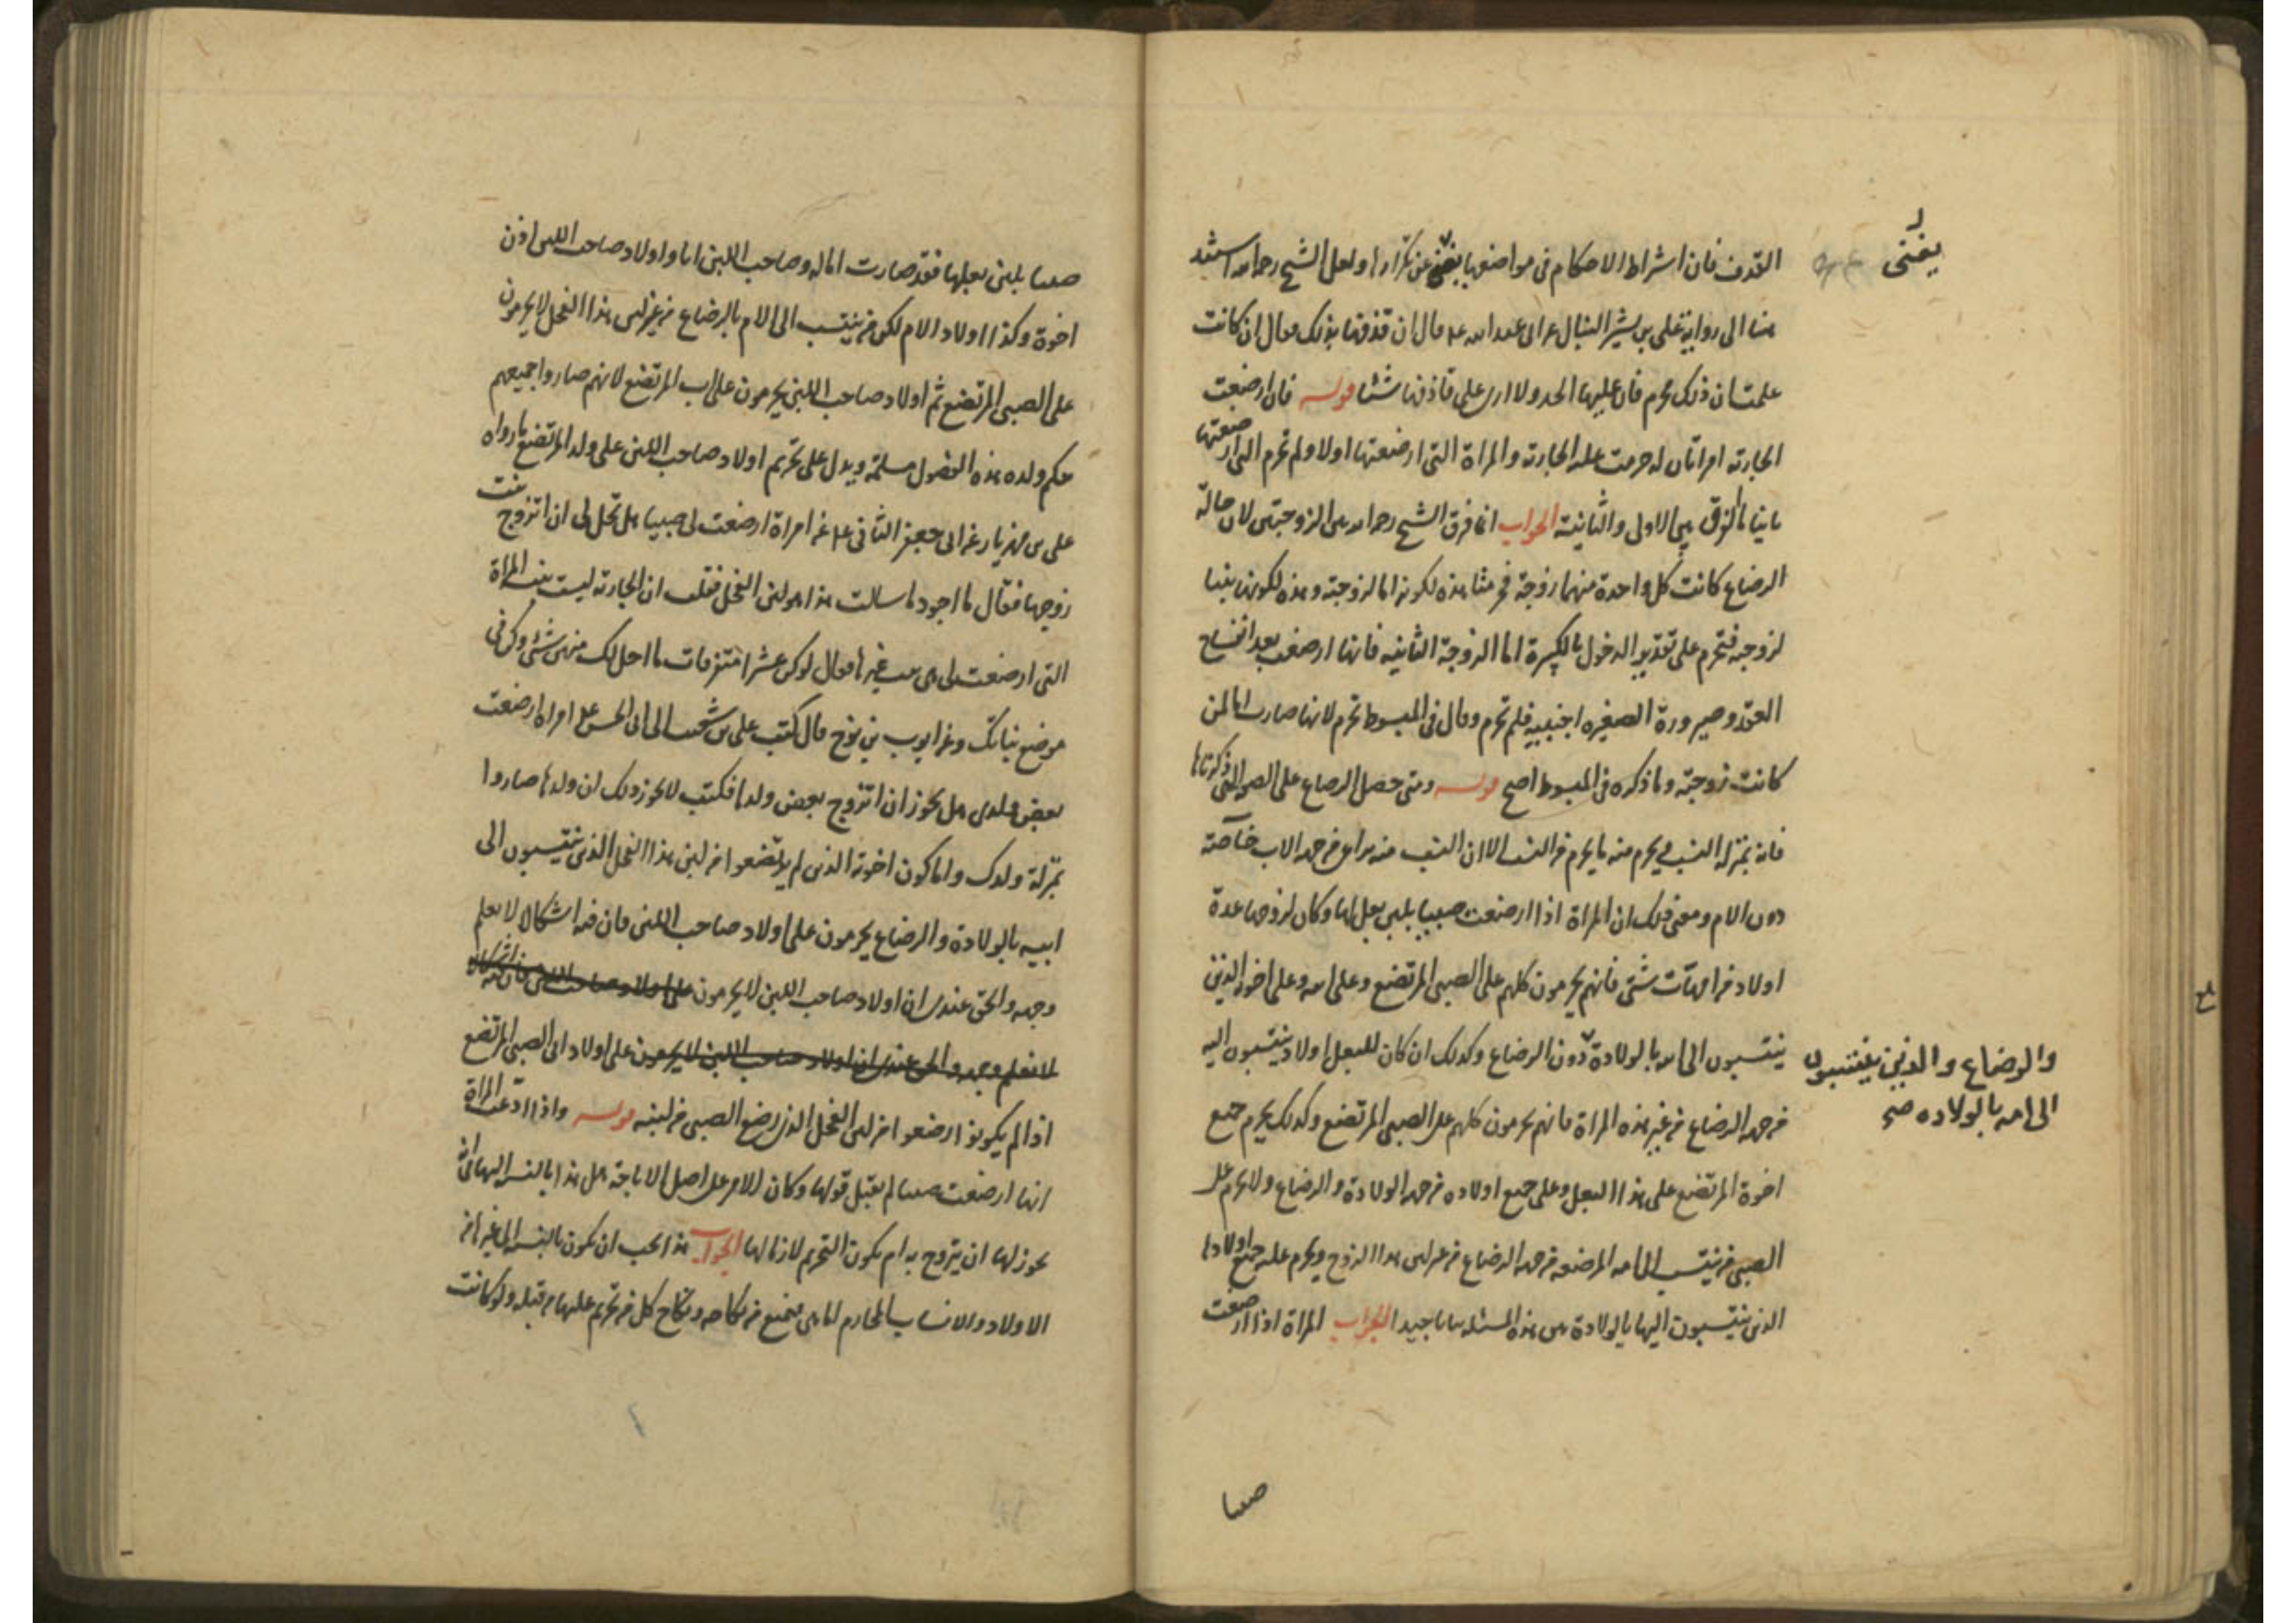 القذف فان اشراط الاحكام فى مواضعها يغنى عن تكرارها ولعل الشيخ رحمه الله استند
يغنى
هنا الى رواية على بن بشير النبال عن ابى عبد الله قال ان قذفها بذلك فقال ان كانت
علمت ان ذلك محرم فان عليها الحد ولا ارى على قاذفها شيئا قوله فان ارضعت
الجارية امراتان له حرمت عليه الجارية والمراة التى ارضعتها اولا ولم تحرم التى ارضعتها
ثانيا ما الفرق بين الاولى والثانية الجواب انما فرق الشيخ رحمه الله بين الزوجتين لان حالة
الرضاع كانت كل واحدة منهما زوجة هذه لكونها اما لزوجته وهذه لكونها بنتا
لزوجته فتحرم على تقدير الدخول بالكبيرة اما الزوجة الثانية فانها ارضعت بعد انفساخ
العقد وصيرورة الصغيره اجنبيه فلم تحرم وقال فى المبسوط تحرم لانها صارت اما لمن
كانت زوجته وما ذكره فى المبسوط اصح قوله ومتى حصل الرضاع على الصفة التى ذكرناها
فانه بمنزلة النسب يحرم منه ما يحرم من النسب الا ان النسب منه يراعى من جهة الاب خاصة
دون الام ومعنى ذلك ان المراة اذا ارضعت صبيا بلبن بعل لها وكان لزوجها عدة
اولاد من امهات شتى فانهم يحرمون كلهم على الصبى المرتضع وعلى ابيه وعلى اخوته الذين
ينتسبون الى ابيه بالولادة دون الرضاع وكذلك ان كان للبعل اولاد ينتسبون اليه
والرضاع والذين ينتسبون
الى امه بالولاده صح
من جهة الرضاع من غير هذه المراة فانهم يحرمون كلهم على الصبى المرتضع وكذلك يحرم جميع
اخوة المرتضع على هذا البعل وعلى جميع اولاده من جهة الولادة والرضاع ولا يحرم على
الصبى من ينتسب الى امه المرضعه من جهة الرضاع من غير لبن هذا الزوج ويحرم عليه جميع اولادها
الذين ينتسبون اليها بالولادة بين هذه المسئلة بيانا جيدا الجواب المراة اذا ارضعت
صبيا
صبيا بلبن بعلها فقد صارت اما له وصاحب اللبن ابا واولاد صاحب اللبن اذن
اخوة وكذا اولاد الام لكن من ينتسب الى الام بالرضاع من غير لبن هذا الفحل لا يحرمون
على الصبى المرتضع ثم اولاد صاحب اللبن يحرمون على اب المرتضع لانهم صاروا جميعهم
حكم ولده هذه الفصول مسلمة ويدل على تحريم اولاد صاحب اللبن على ولد المرتضع ما رواه
على بن مهزيار عن ابى جعفر الثانى عن امراة ارضعت لى صبيا هل تحل لى ان اتزوج بنت
زوجها فقال ما اجود ما سالت هذا هو لبن الفحل فقلت ان الجارية ليست بنت المراة
التى ارضعت لى هى بنت غيرها فقال لو كن عشرا متفرقات ما احل لك منهن شئ وكن فى
موضع بناتك وعن ايوب بن نوح قال كتب على بن شعيب الى ابى الحسن امراة ارضعت
بعض ولدى هل يجوز ان اتزوج بعض ولدها فكتب لا يجوز ذلك ان ولدها صاروا
بمنزلة ولدك واما كون اخوته الذين لم يرتضعوا من لبن هذا الفحل الذين ينتسبون الى
ابيه بالولادة والرضاع يحرمون على اولاد صاحب اللبن فان فيه اشكالا لا نعلم
وجهه والحق عندى ان اولاد صاحب اللبن لا يحرمون على اولاد صاحب اللبن فان فيه اشكالا
لا نعلم وجهه والحق عندى ان اولاد صاحب اللبن لا يحرمون على اولاد ابى الصبى المرتضع
اذا لم يكونوا ارضعوا من لبن الفحل الذى رضع الصبى من لبنه قوله واذا ادعت المراة
انها ارضعت صبيا لم يقبل قولها وكان الامر على اصل الاباحة هل هذا بالنسبة اليها اى
يجوز لها ان يتزوج به ام يكون التحريم لازما لها الجواب هذا يجب ان يكون بالنسبة الى غيرها من
الاولاد والانساب المحارم اما هى فتمنع من نكاحه ونكاح كل من تحرم عليها من قبله ولو كانت